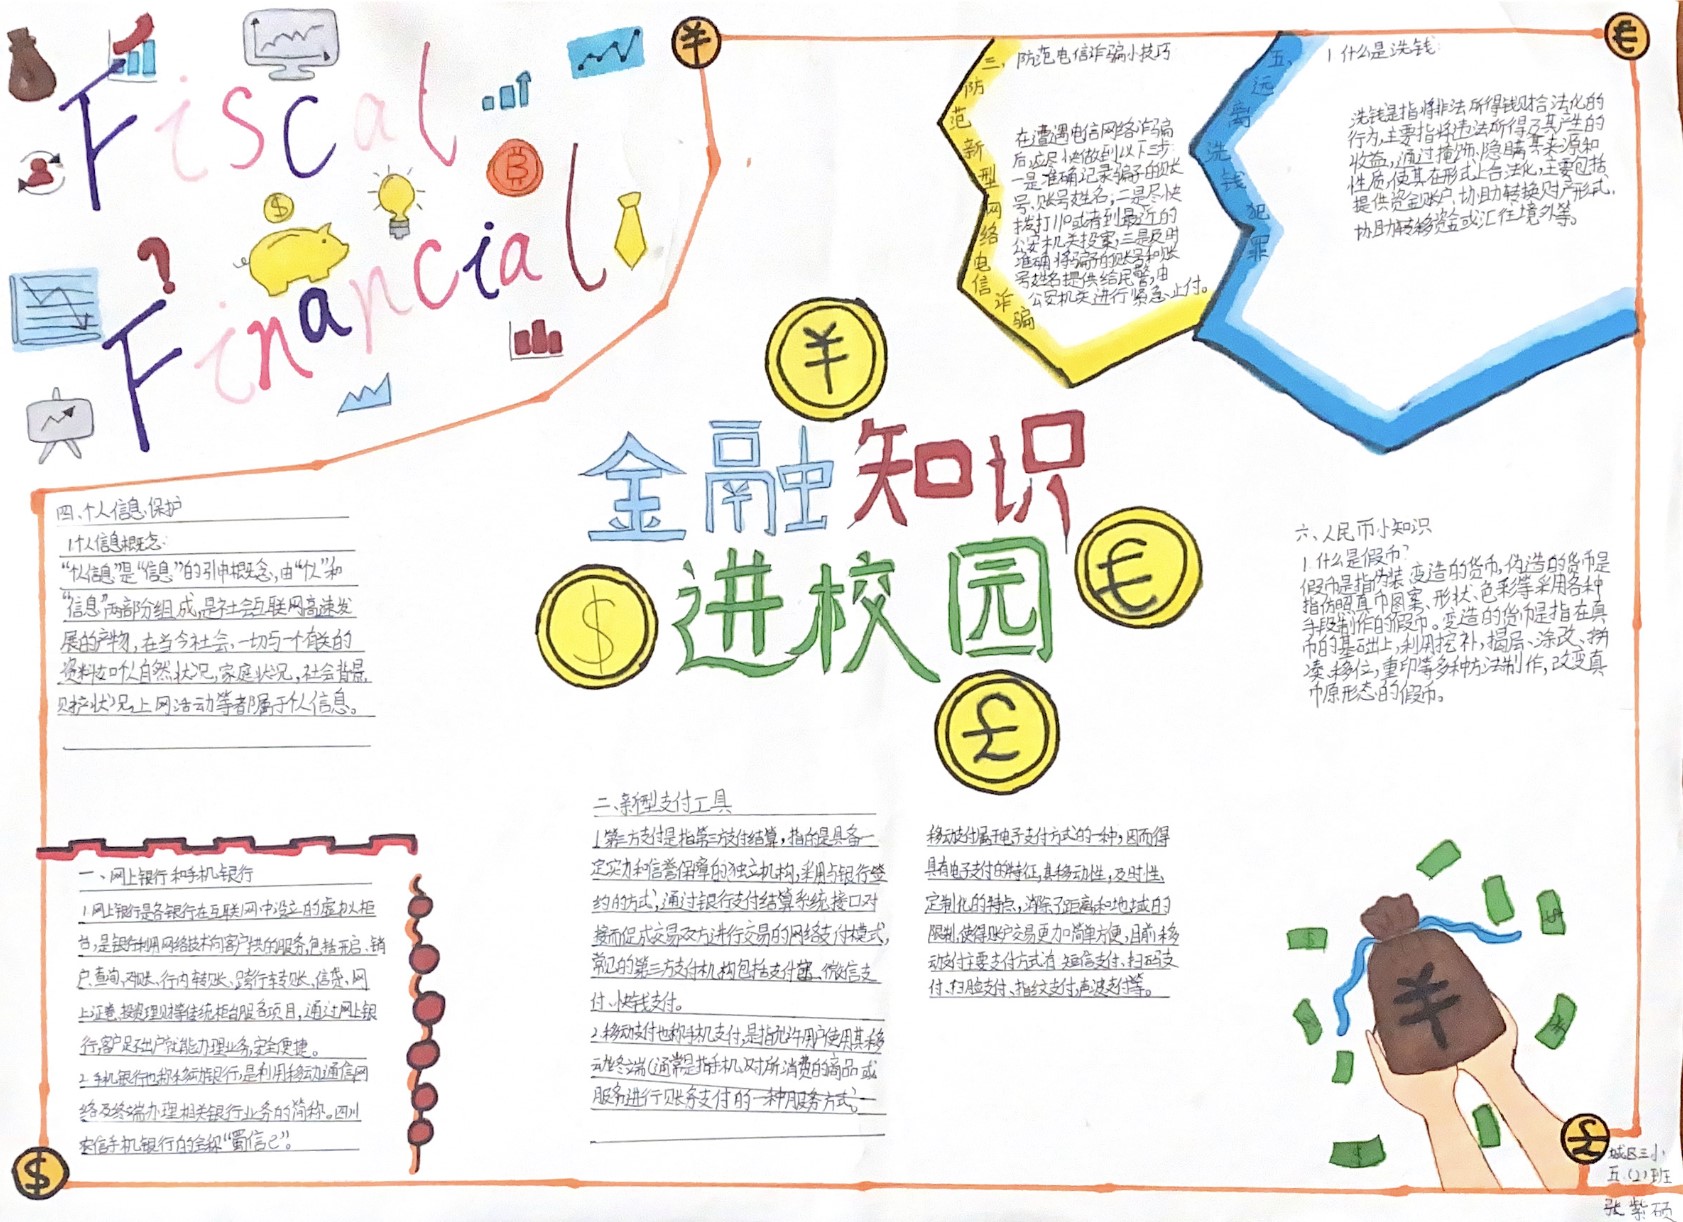 Fiscal
Financial
金融知识
进校园
一、网上银行和手机银行
1.网上银行是各银行在互联网中设立的虚拟柜
台,是银行利用网络技术向客户提供的服务,包括开启、销
户、查询、对账、行内转账、跨行转账、信贷、网
上证券、投资理财等传统柜台服务项目,通过网上银
行,客户足不出户就能办理业务,安全便捷。
2.手机银行也称移动银行,是利用移动通信网
络及终端办理相关银行业务的简称。四川
农信手机银行的全称“蜀信e”。
二、新型支付工具
1.第三方支付是指第三方支付结算,指的是具备一
定实力和信誉保障的独立机构,采用与银行签
约的方式,通过银行支付结算系统接口对
接而促成交易双方进行交易的网络支付模式,
常见的第三方支付机构包括支付宝、微信支
付、快钱支付。
2.移动支付也称手机支付,是指允许用户使用其移
动终端(通常是指手机)对所消费的商品或
服务进行账务支付的一种服务方式。
移动支付属于电子支付方式的一种,因而得
具有电子支付的特征,具移动性,及时性、
定制化的特点,消除了距离和地域的
限制,使得账户交易更加简单方便,目前移
动支付主要支付方式有:短信支付、扫码支
付、扫脸支付、指纹支付,声波支付等。
三、防范新型网络电信诈骗
防范电信诈骗小技巧
在遭遇电信网络诈骗
后应尽快做到以下三步
一是准确记录骗子的账
号、账号姓名;二是尽快
拨打110或有到最近的
公安机关投案;三是及时
准确将骗子的账号和账
号姓名提供给民警,由
公安机关进行紧急止付。
四、个人信息保护
1.个人信息概念:
“个人信息”是“信息”的引申概念,由“个人”和
“信息”两部分组成,是社会互联网高速发
展的产物,在当今社会,一切与个有关的
资料如个人自然状况,家庭状况,社会背景,
财产状况,上网活动等都属于个人信息。
五、远离洗钱犯罪
1什么是洗钱
洗钱是指将非法所得钱财合法化的
行为,主要指将违法所得及其产生的
收益,通过掩饰、隐瞒其来源和
性质,使其在形式上合法化,主要包括
提供资金账户、协助转换财产形式,
协助转移资金或汇往境外等。
六、人民币小知识
1.什么是假币?
假币是指伪装、变造的货币,伪造的货币是
指仿照真币图案、形状、色彩等采用各种
手段制作的假币。变造的货币是指在真
币的基础上,利用挖补,揭层、涂改、拼
凑、移位,重印等多种方法制作,改变真
币原形态的假币。
城区三小
五.(2)班
张紫硕